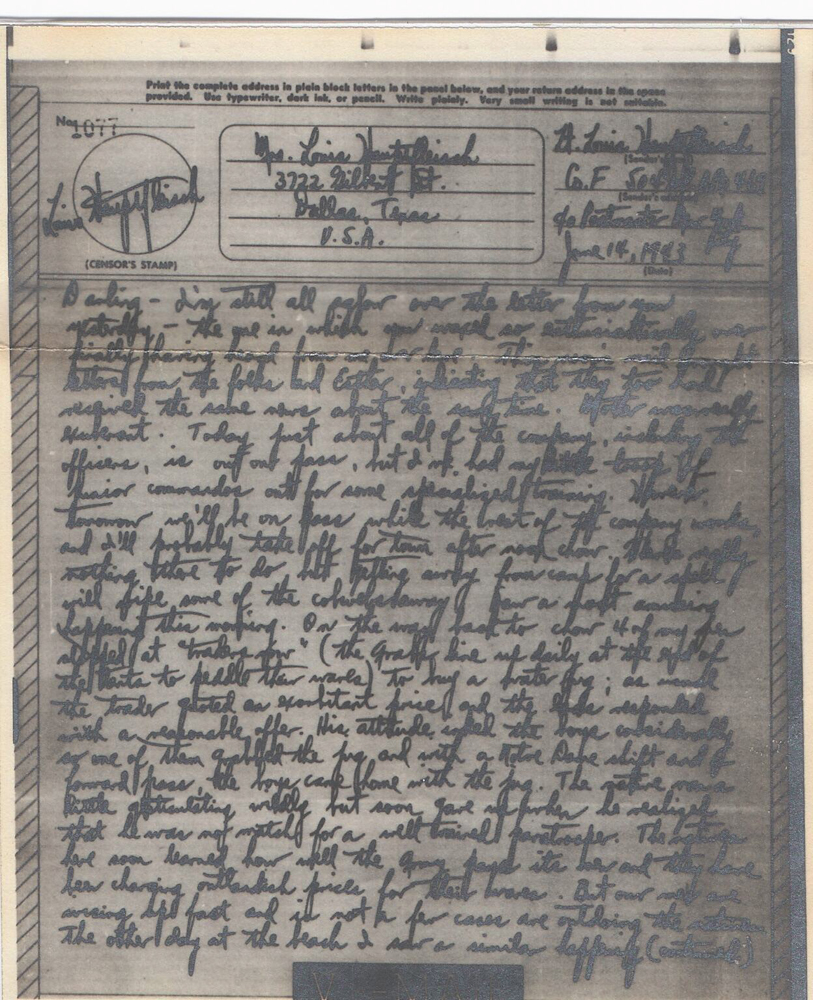 Print the complete address in plain block letters in the panel below, and your return address in the space
provided. Use typewriter, dark ink, or pencil. Write plainly. Very small writing is not suitable.
No. 1077
(CENSOR'S STAMP)
Mrs. Louis
3722 Gilbert St.
Dallas, Texas
U.S.A.
Lt. Louis
Co. F
c/o Postmaster New York
June 14, 1943
(Date)
Darling – I'm still all aglow over the letter from you
yesterday – the one in which you waxed so enthusiastically over
finally having heard from me
letters from the folks and Esther, indicating that they too had
received the same news about the same time. Mother was really
exuberant. Today just about all of the company, including the
officers, is out on pass, but I had my little troop of
junior commandos out for some specialized training.
tomorrow we'll be on pass while the rest of the company works,
and I'll probably take off for town after noon chow. really
nothing there to do but getting away from camp for a spell
will wipe some of the cobwebs away. Saw a most amusing
happening this morning. On the way back to chow 4 of my men
stopped at "traders row" (the Arabs line up daily at the end of
the tents to peddle their wares) to buy a water jug; as usual
the trader quoted an exorbitant price and the lads responded
with a reasonable offer. His attitude irked the boys considerably
so one of them grabbed the jug and with a Notre Dame shift and a
forward pass, the boys came home with the jug. The native was
gesticulating wildly but soon gave up when he realized
that he was not match for a well trained paratrooper. The natives
have soon learned how well the Army pays its men and they have
been charging outlandish prices for their wares. But our men are
wising up fast and in not a few cases are outdoing the natives.
The other day at the beach I saw a similar happening (continued)